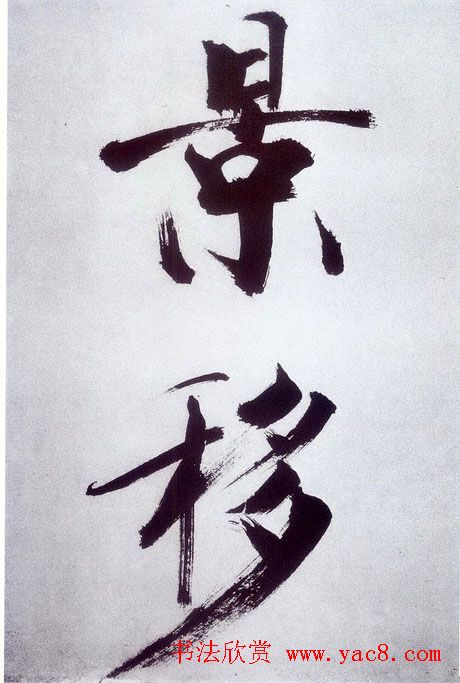 景
移
书法欣赏 www.yac8.com